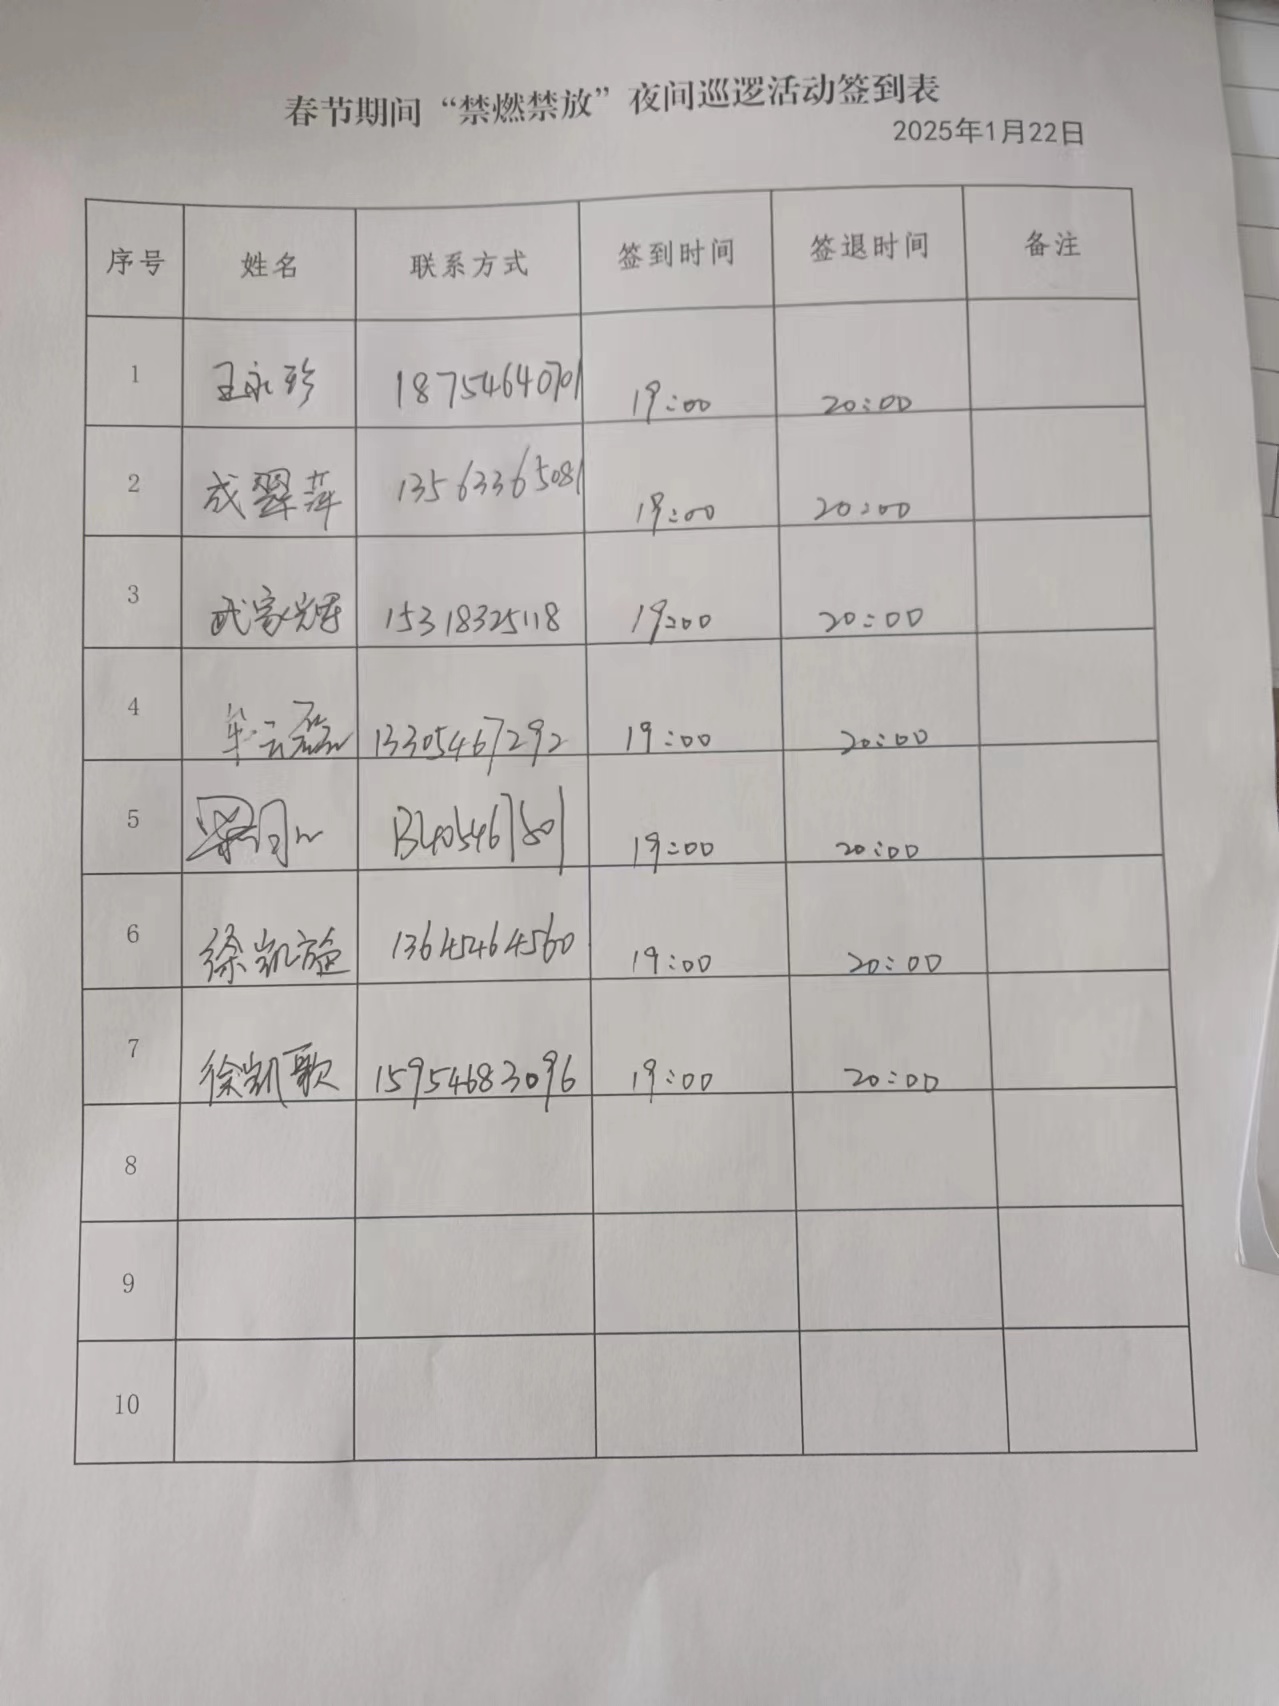 春节期间“禁燃禁放”夜间巡逻活动签到表
2025年1月22日
序号 姓名 联系方式 签到时间 签退时间 备注
1 王永珍 18754640701 19:00 20:00
2 成翠萍 13563365081 19:00 20:00
3 武家辉 15318325118 19:00 20:00
4 牟云磊 13305467292 19:00 20:00
5 19:00 20:00
6 徐凯旋 13645464560 19:00 20:00
7 徐凯歌 15954683096 19:00 20:00
8
9
10